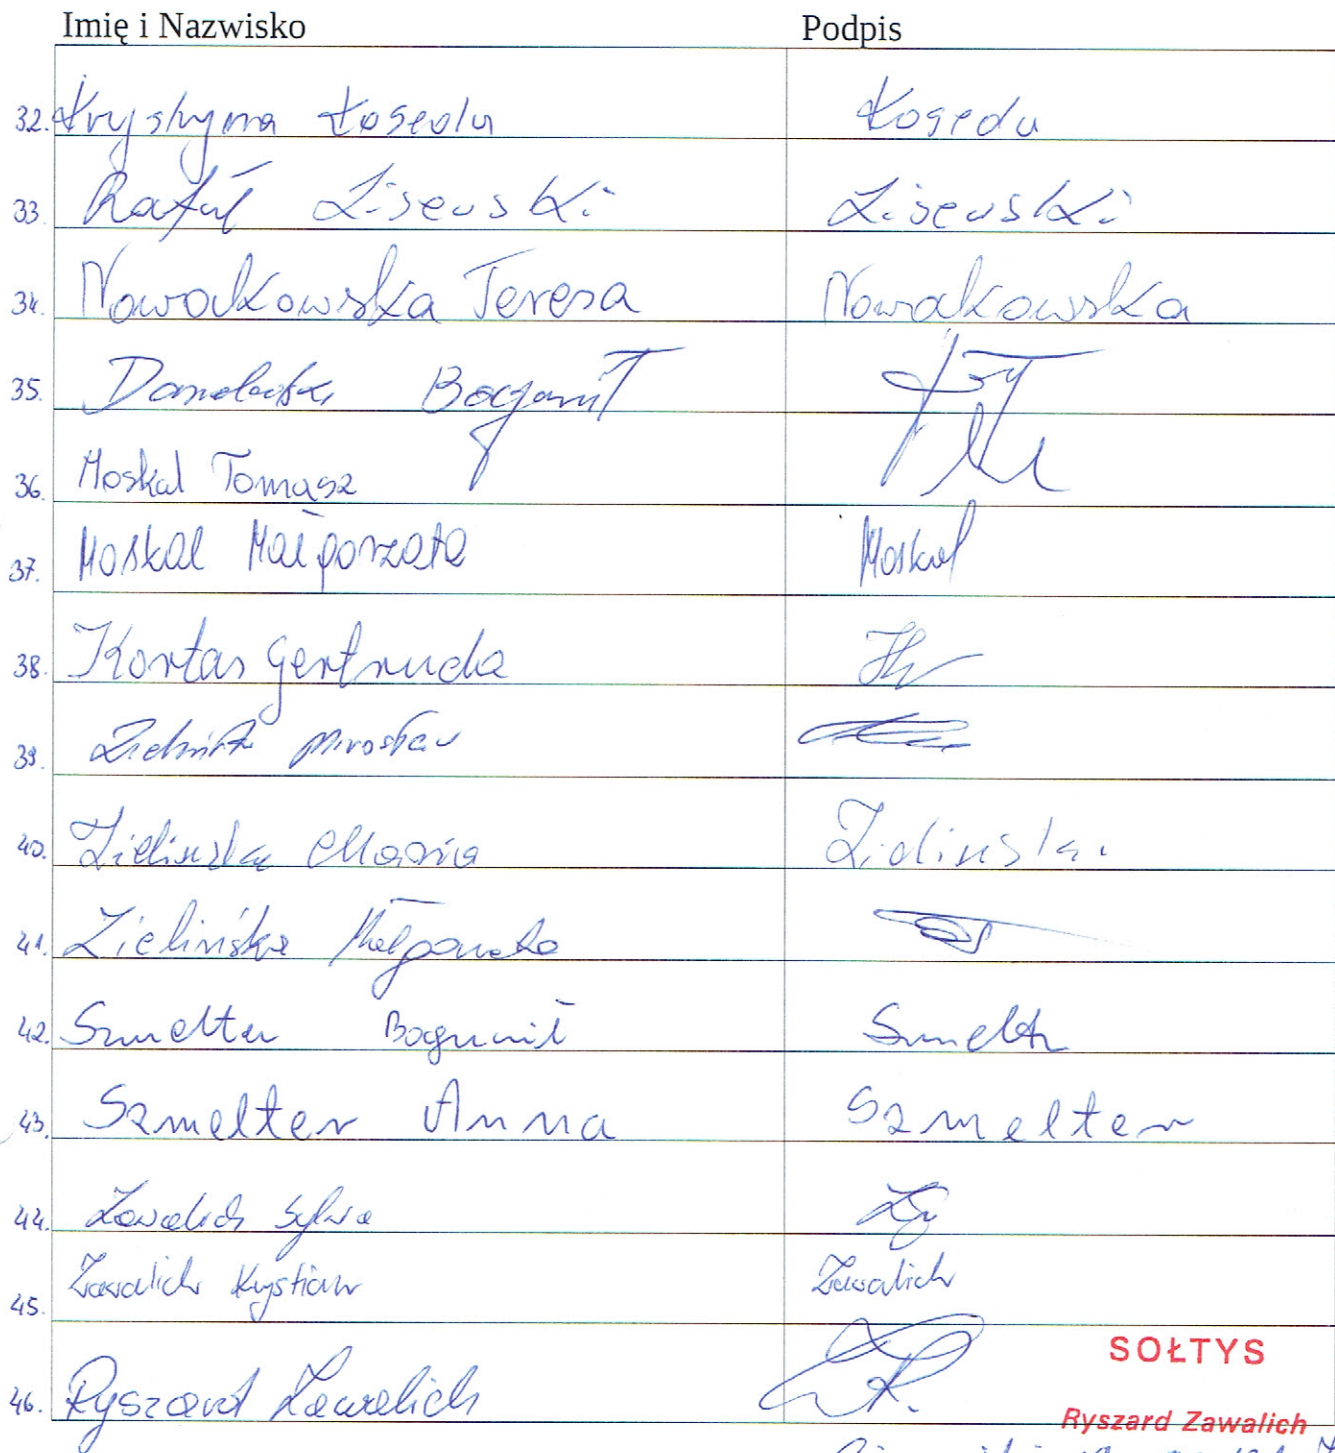 Imię i Nazwisko Podpis
32. Krystyna Łosedu Łosedu
33. Rafał Lisewski Lisewski
34. Nowakowska Teresa Nowakowska
35. Bogumił
36. Moskal Tomasz
37. Moskal Małgorzata Moskal
38. Kortas Gertruda
39. Mirosław
40. Zielinska Maria Zielinska
41. Zielińska Małgorzata
42. Szmelter Bogumił Szmelter
43. Szmelter Anna Szmelter
44. Zawalich Sylwia
45. Zawalich Krystian Zawalich
46. Ryszard Zawalich
SOŁTYS
Ryszard Zawalich